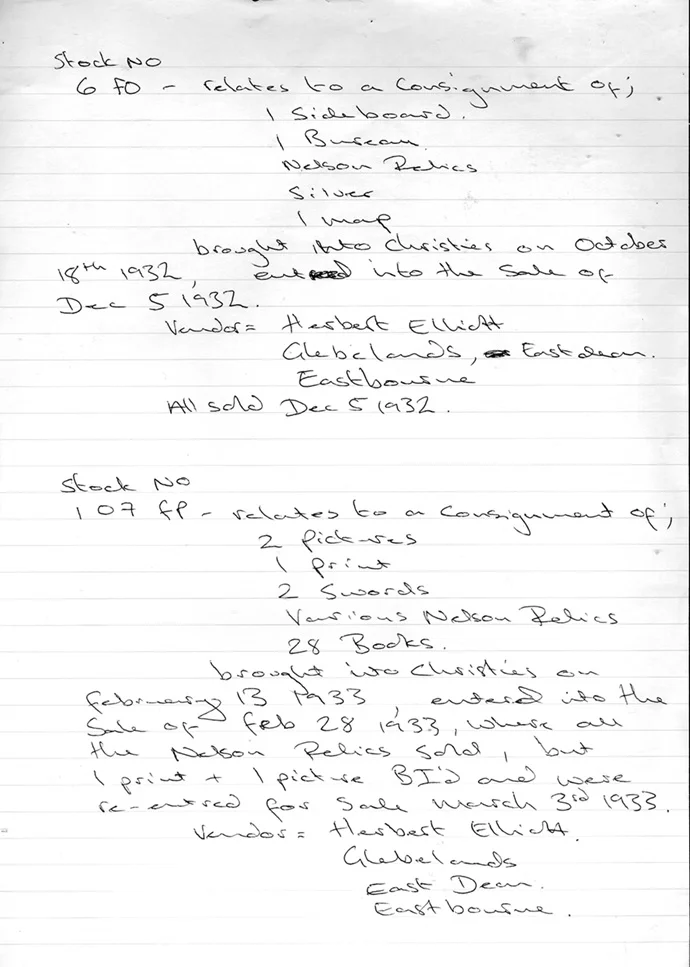 Stock No
6 FO - relates to a Consignment of;
1 Sideboard.
1 Bureau
Nelson Relics
Silver
1 map
brought into Christies on October
18th 1932, entred into the Sale of
Dec 5 1932.
Vendor = Herbert Elliott
Glebelands, Eastdean.
Eastbourne
All sold Dec 5 1932.
Stock No
107 FP - relates to a Consignment of;
2 pictures
1 print
2 Swords
Various Nelson Relics
28 Books.
brought into Christies on
February 13 1933, entered into the
Sale of Feb 28 1933, where all
the Nelson Relics sold, but
1 print + 1 picture BI'd and were
re-entred for Sale March 3rd 1933.
Vendor = Herbert Elliott.
Glebelands
East Dean.
Eastbourne.